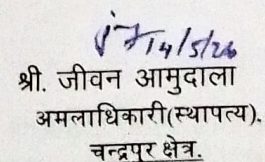 14/5/26
श्री. जीवन आमुदाला
अमलाधिकारी(स्थापत्य).
चन्द्रपुर क्षेत्र.